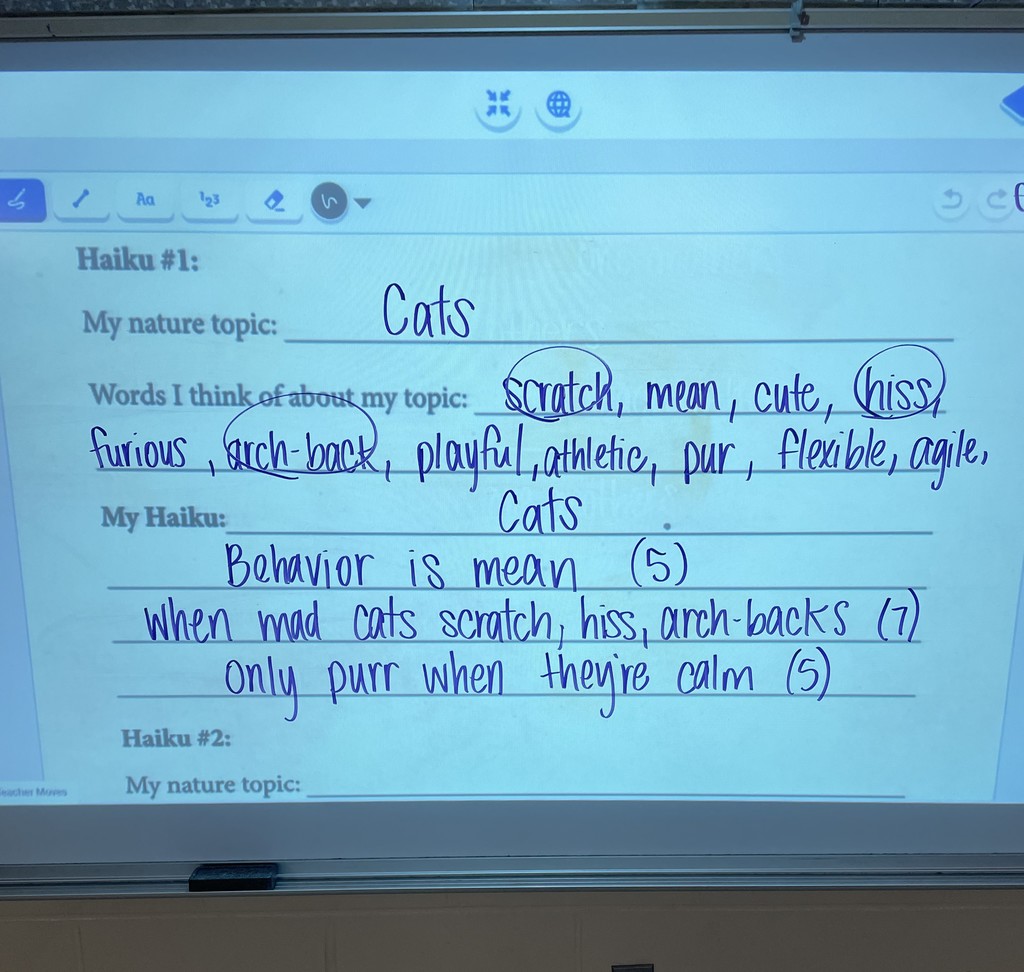 Aa
123
Haiku #1:
My nature topic: Cats
Words I think of about my topic: scratch, mean, cute, hiss,
furious, arch-back, playful, athletic, pur, flexible, agile,
My Haiku: Cats
Behavior is mean (5)
when mad cats scratch, hiss, arch-backs (7)
only purr when they're calm (5)
Haiku #2:
My nature topic:
Teacher Moves